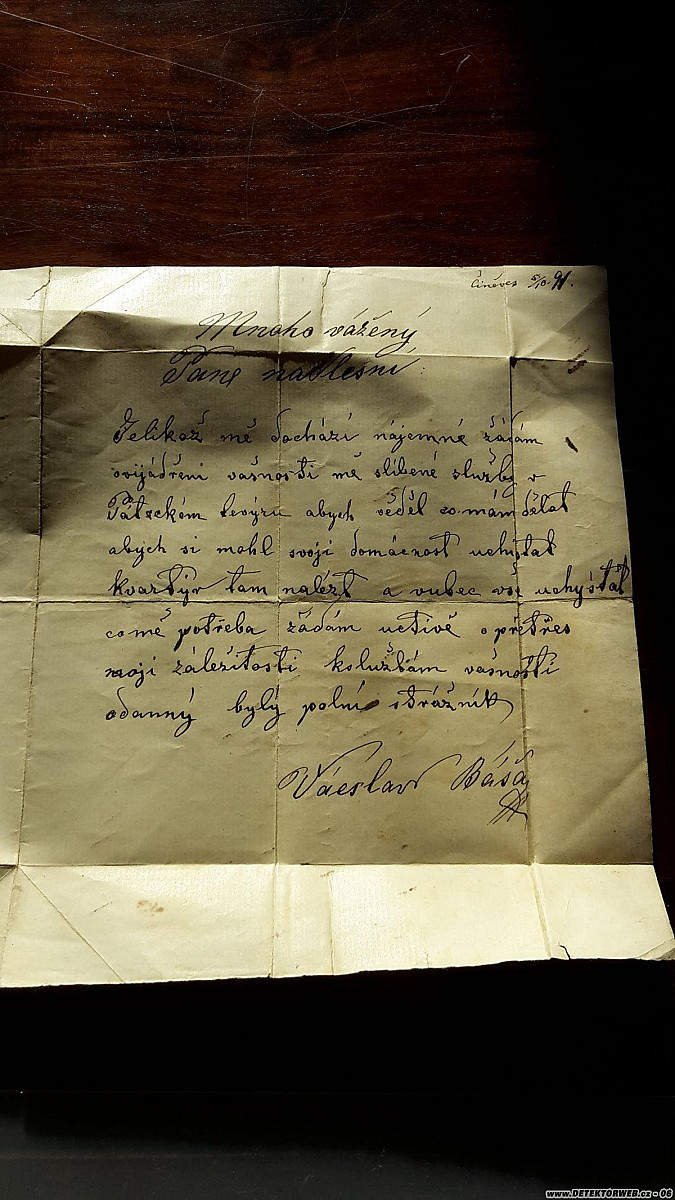 Činěves 5/10 91.
Mnoho vážený
Pane nadlesní:
Jelikož mě dochází nájemné žádám
vašnosti mě slíbené služby v
Pátzckém revýru abych věděl co mám dělat
abych si mohl svoji domácnost uchystat
kvartýr tam nalézt a vubec vše uchýstat
co mě potřeba žádám uctivě o přetřes
moji záležitosti kslužbám vašnosti
odanný bylý polní strážník
Václav Báša
www.DETEKTORWEB.cz - 06